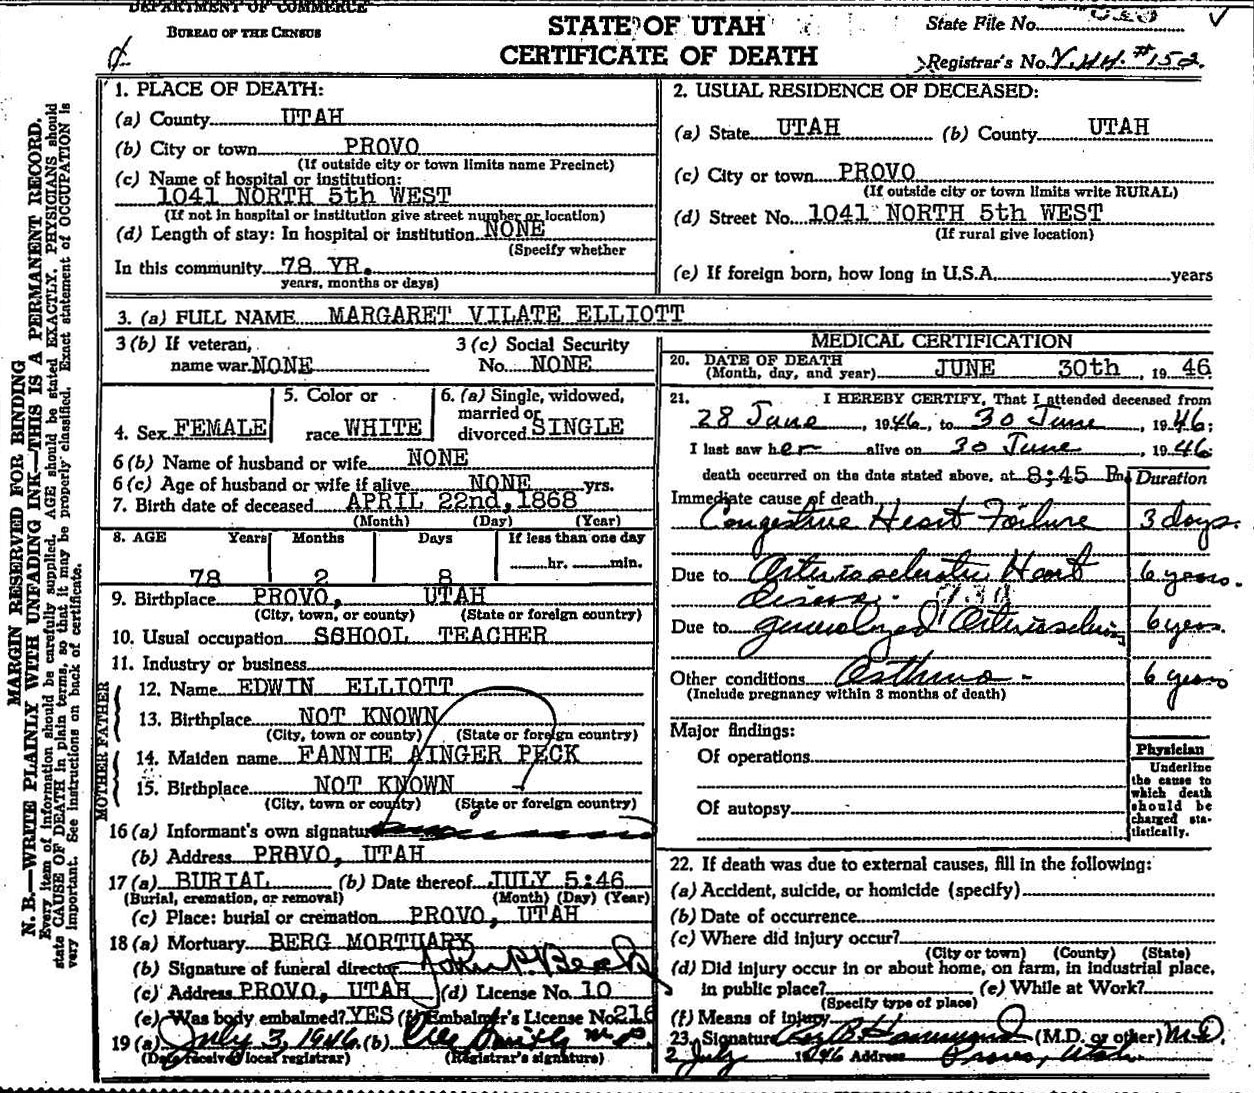 DEPARTMENT OF COMMERCE
BUREAU OF THE CENSUS
STATE OF UTAH
CERTIFICATE OF DEATH
State File No.
Registrar's No. #152.
MARGIN RESERVED FOR BINDING
N. B.—WRITE PLAINLY WITH UNFADING INK—THIS IS A PERMANENT RECORD.
Every item of information should be carefully supplied. AGE should be stated EXACTLY. PHYSICIANS should
state CAUSE OF DEATH in plain terms, so that it may be properly classified. Exact statement of OCCUPATION is
very important. See instructions on back of certificate.
1. PLACE OF DEATH:
(a) County UTAH
(b) City or town PROVO
(If outside city or town limits name Precinct)
(c) Name of hospital or institution:
1041 NORTH 5th WEST
(If not in hospital or institution give street number or location)
(d) Length of stay: In hospital or institution NONE
(Specify whether
In this community 78 YR.
years, months or days)
2. USUAL RESIDENCE OF DECEASED:
(a) State UTAH (b) County UTAH
(c) City or town PROVO
(If outside city or town limits write RURAL)
(d) Street No. 1041 NORTH 5th WEST
(If rural give location)
(e) If foreign born, how long in U.S.A. years
3. (a) FULL NAME MARGARET VILATE ELLIOTT
3 (b) If veteran, 3 (c) Social Security
name war NONE No. NONE
5. Color or 6. (a) Single, widowed,
married or
4. Sex FEMALE race WHITE divorced SINGLE
6 (b) Name of husband or wife NONE
6 (c) Age of husband or wife if alive NONE yrs.
7. Birth date of deceased APRIL 22nd, 1868
(Month) (Day) (Year)
8. AGE Years Months Days If less than one day
78 2 8 hr. min.
9. Birthplace PROVO, UTAH
(City, town, or county) (State or foreign country)
10. Usual occupation SCHOOL TEACHER
11. Industry or business
FATHER
12. Name EDWIN ELLIOTT
13. Birthplace NOT KNOWN
(City, town or county) (State or foreign country)
MOTHER
14. Maiden name FANNIE AINGER PECK
15. Birthplace NOT KNOWN
(City, town or county) (State or foreign country)
16 (a) Informant's own signature
(b) Address PROVO, UTAH
17 (a) BURIAL (b) Date thereof JULY 5:46
(Burial, cremation, or removal) (Month) (Day) (Year)
(c) Place: burial or cremation PROVO, UTAH
18 (a) Mortuary BERG MORTUARY
(b) Signature of funeral director
(c) Address PROVO, UTAH (d) License No. 10
(e) Was body embalmed? YES (f) Embalmer's License No. 216
19 (a) July 3, 1946 (b) Smith M.D.
(Date received local registrar) (Registrar's signature)
MEDICAL CERTIFICATION
20. DATE OF DEATH
(Month, day, and year) JUNE 30th, 1946
21. I HEREBY CERTIFY, That I attended deceased from
28 June, 1946, to 30 June, 1946;
I last saw her alive on 30 June, 1946
death occurred on the date stated above, at 8:45 Pm. Duration
Immediate cause of death
Congestive Heart Failure 3 days.
Due to Arteriosclerotic Heart 6 years.
Disease.
Due to Generalized Arteriosclerosis 6 years.
Other conditions Asthma - 6 years
(Include pregnancy within 3 months of death)
Major findings:
Of operations
Of autopsy
Physician
Underline
the cause to
which death
should be
charged sta-
tistically.
22. If death was due to external causes, fill in the following:
(a) Accident, suicide, or homicide (specify)
(b) Date of occurrence
(c) Where did injury occur?
(City or town) (County) (State)
(d) Did injury occur in or about home, on farm, in industrial place,
in public place? (e) While at Work?
(Specify type of place)
(f) Means of injury
23. Signature Hammond (M.D. or other) M.D.
2 July 1946 Address Provo, Utah.